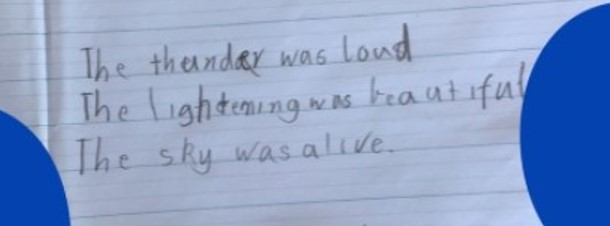 The thunder was loud
The lightening was beautiful
The sky was alive.